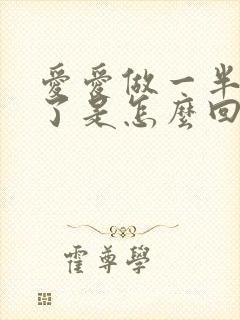 愛愛做一半
了是怎麼回
霍尊學